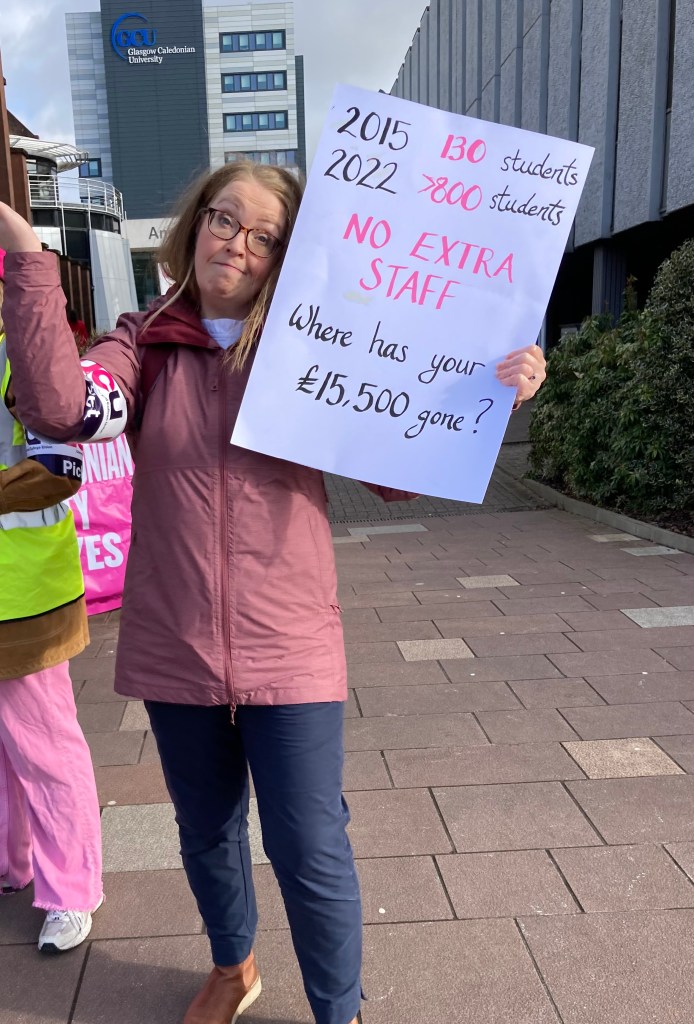 GCU
Glasgow Caledonian
University
2015 130 students
2022 >800 students
NO EXTRA
STAFF
Where has your
£15,500 gone?
CU
Pic
ONIAN
Y
YES